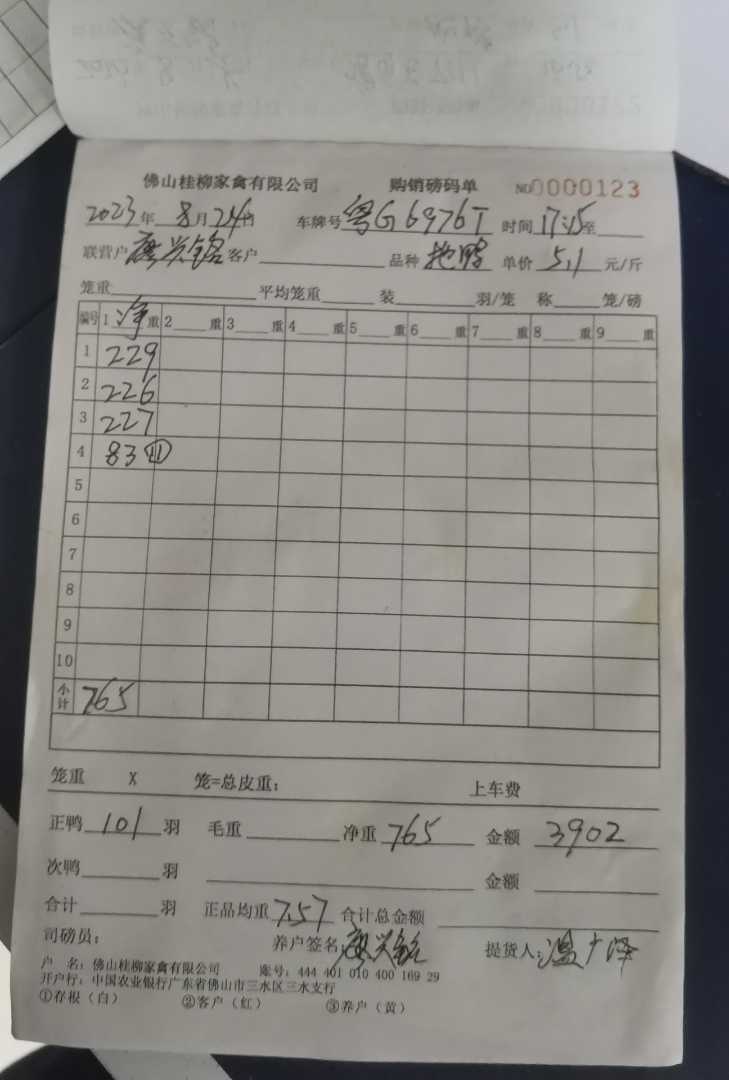 佛山桂柳家禽有限公司 购销磅码单 NO0000123
2023年 8月24日 车牌号 粤G6976T 时间 17:15至
联营户 廖兴铭 客户 品种 单价 5.1 元/斤
笼重 平均笼重 装 羽/笼 称 笼/磅
编号 1 净 重 2 重 3 重 4 重 5 重 6 重 7 重 8 重 9 重
1 229
2 226
3 227
4 83 ⑪
5
6
7
8
9
10
小计 765
笼重 X 笼=总皮重: 上车费
正鸭 101 羽 毛重 净重 765 金额 3902
次鸭 羽 金额
合计 羽 正品均重 7.57 合计总金额
司磅员: 养户签名: 廖兴铭 提货人: 温广泽
户 名: 佛山桂柳家禽有限公司 账号: 444 401 010 400 169 29
开户行: 中国农业银行广东省佛山市三水区三水支行
①存根(白) ②客户(红) ③养户(黄)